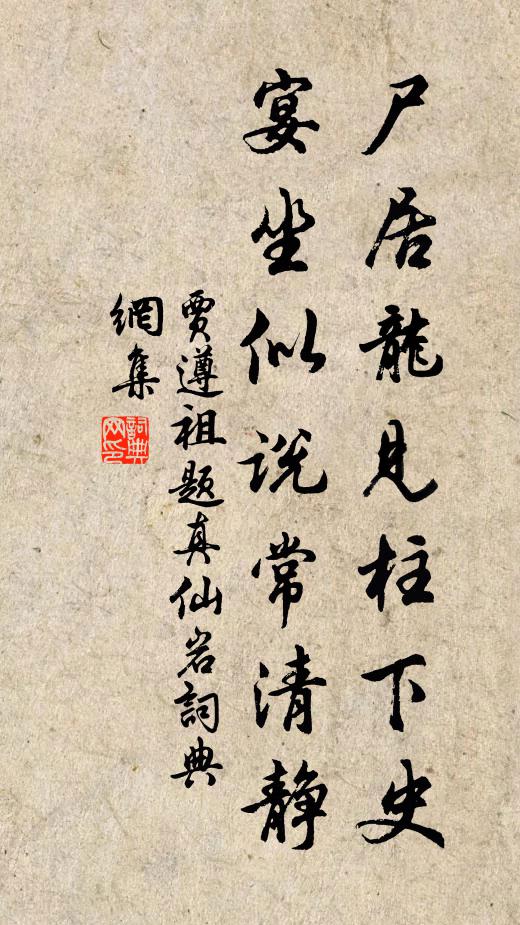 尸居龍見柱下史
宴坐似说常清静
賈遵祖题真仙岩詞典
網集
詞典
网印